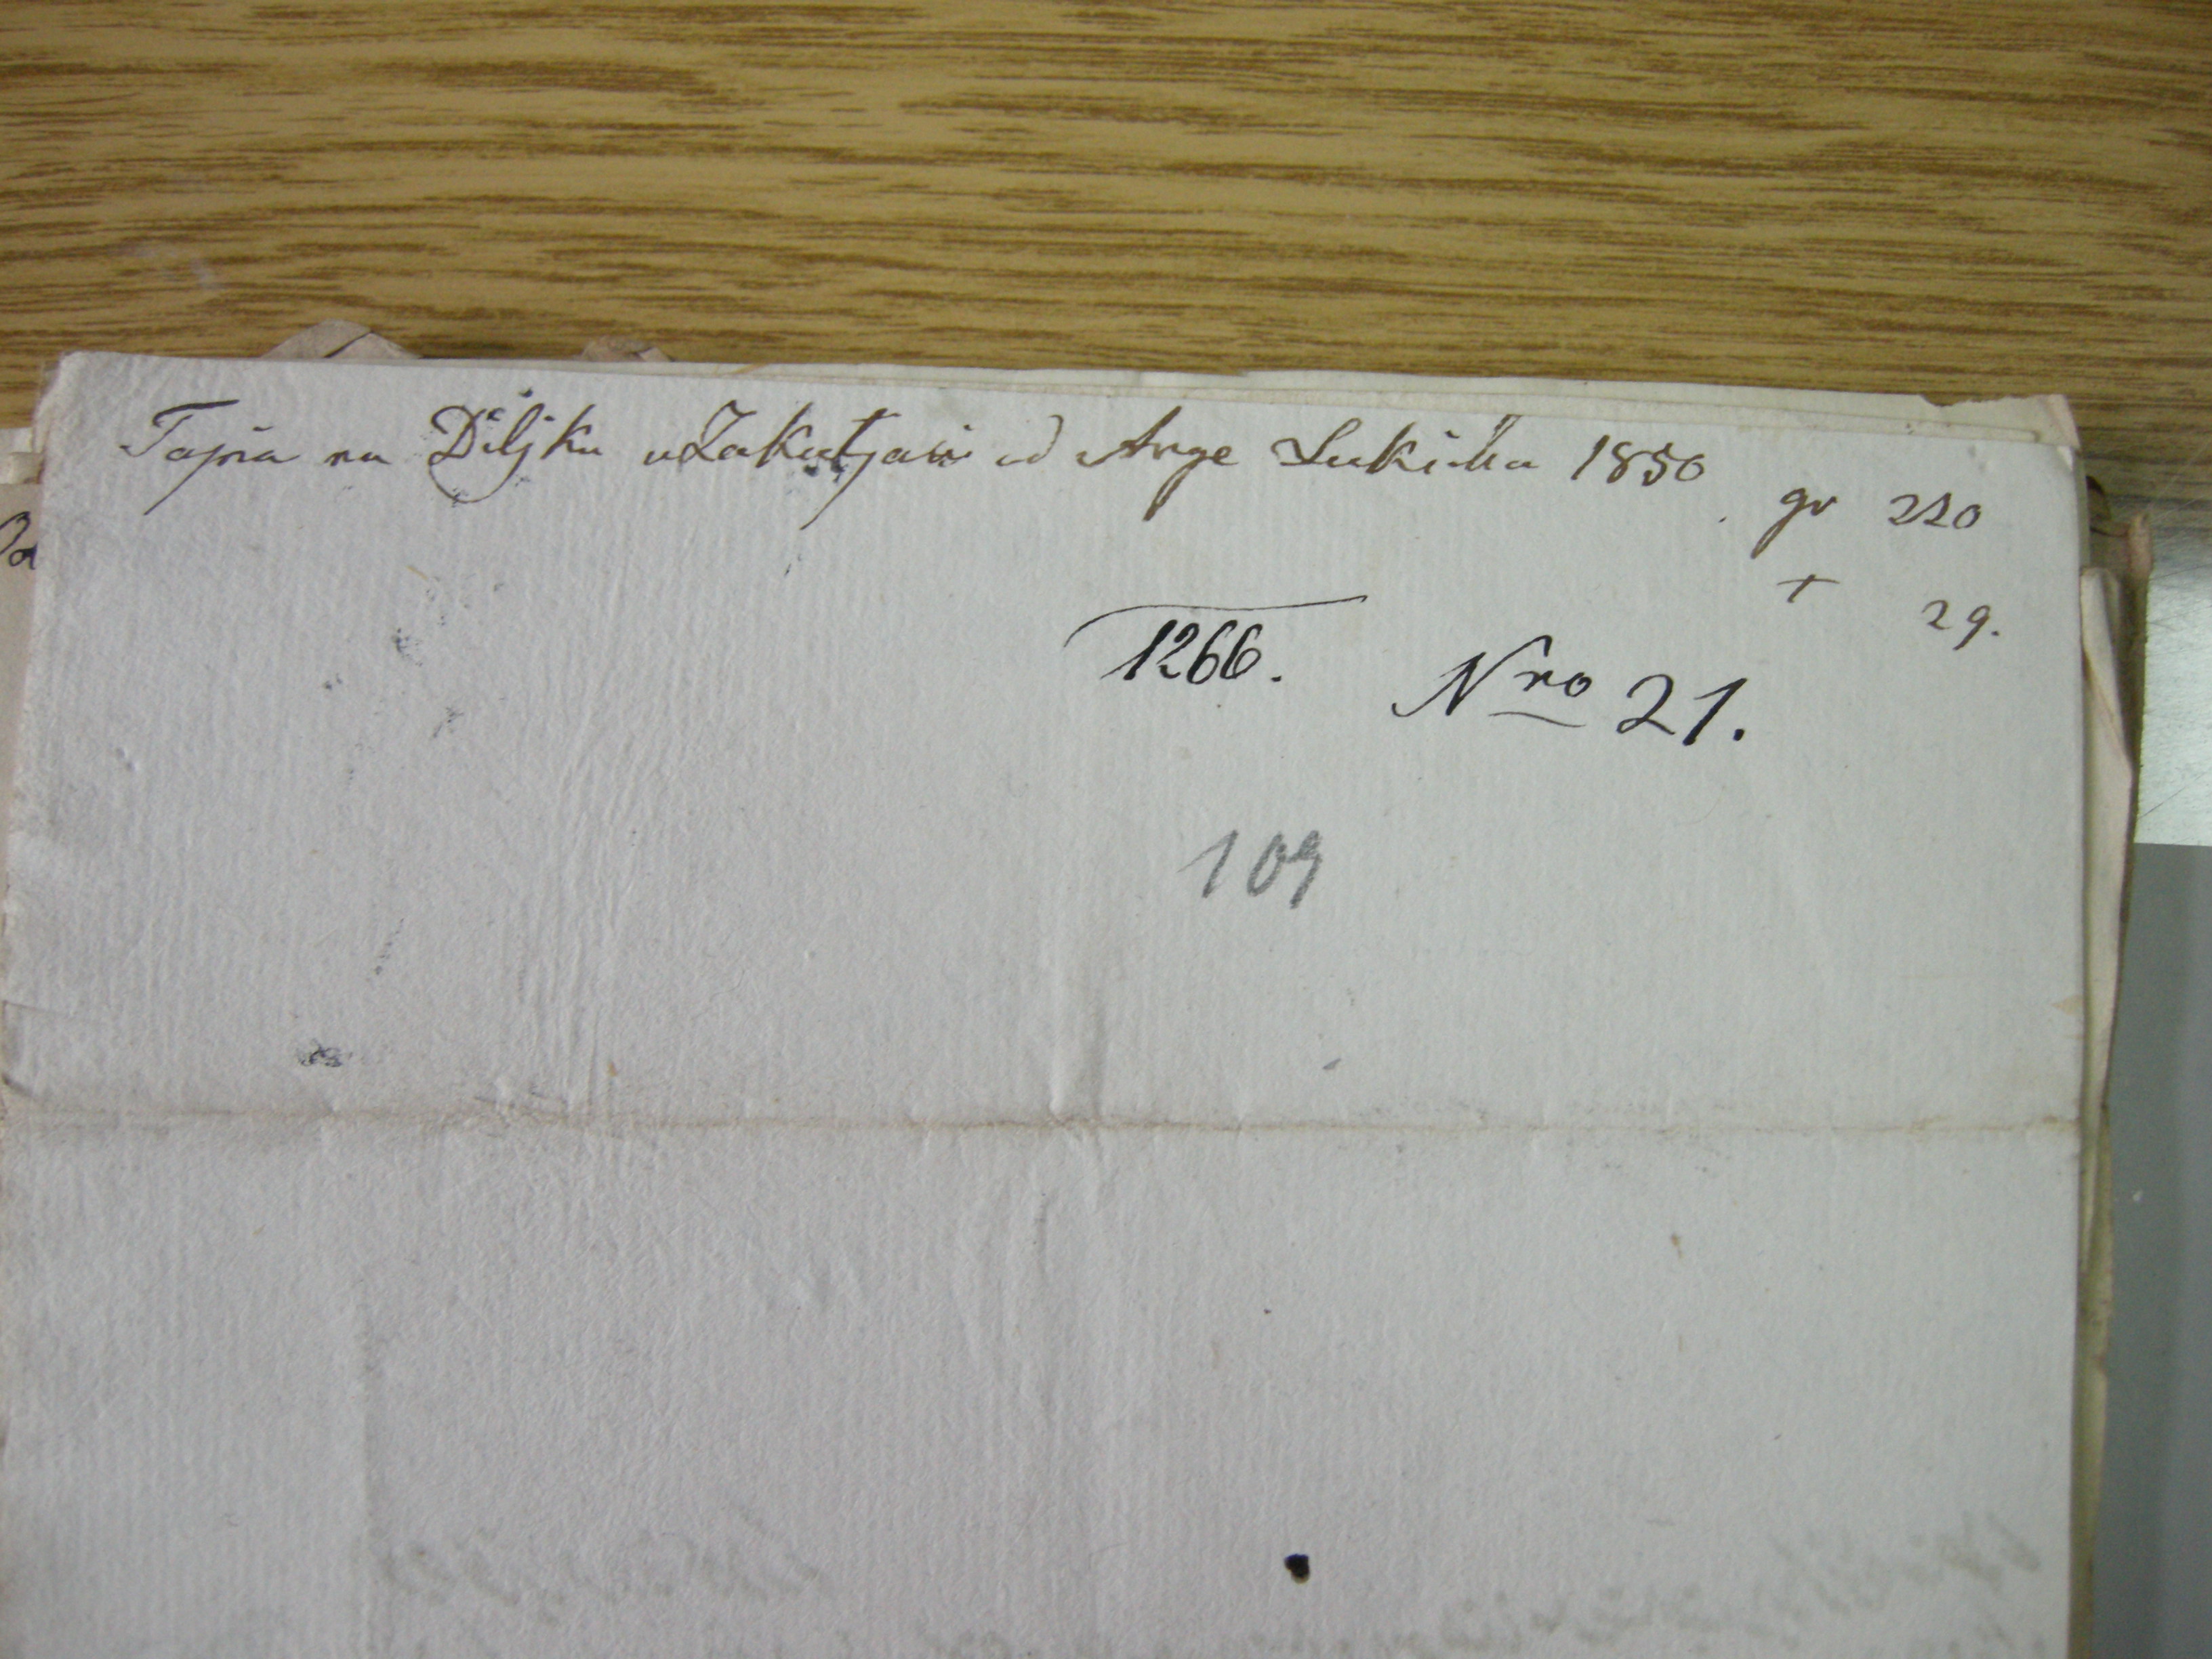 Tapia na Diljku u Zakutjaii od Ange Lukicha 1850
gr 220
+ 29.
1266. Nro 21.
109